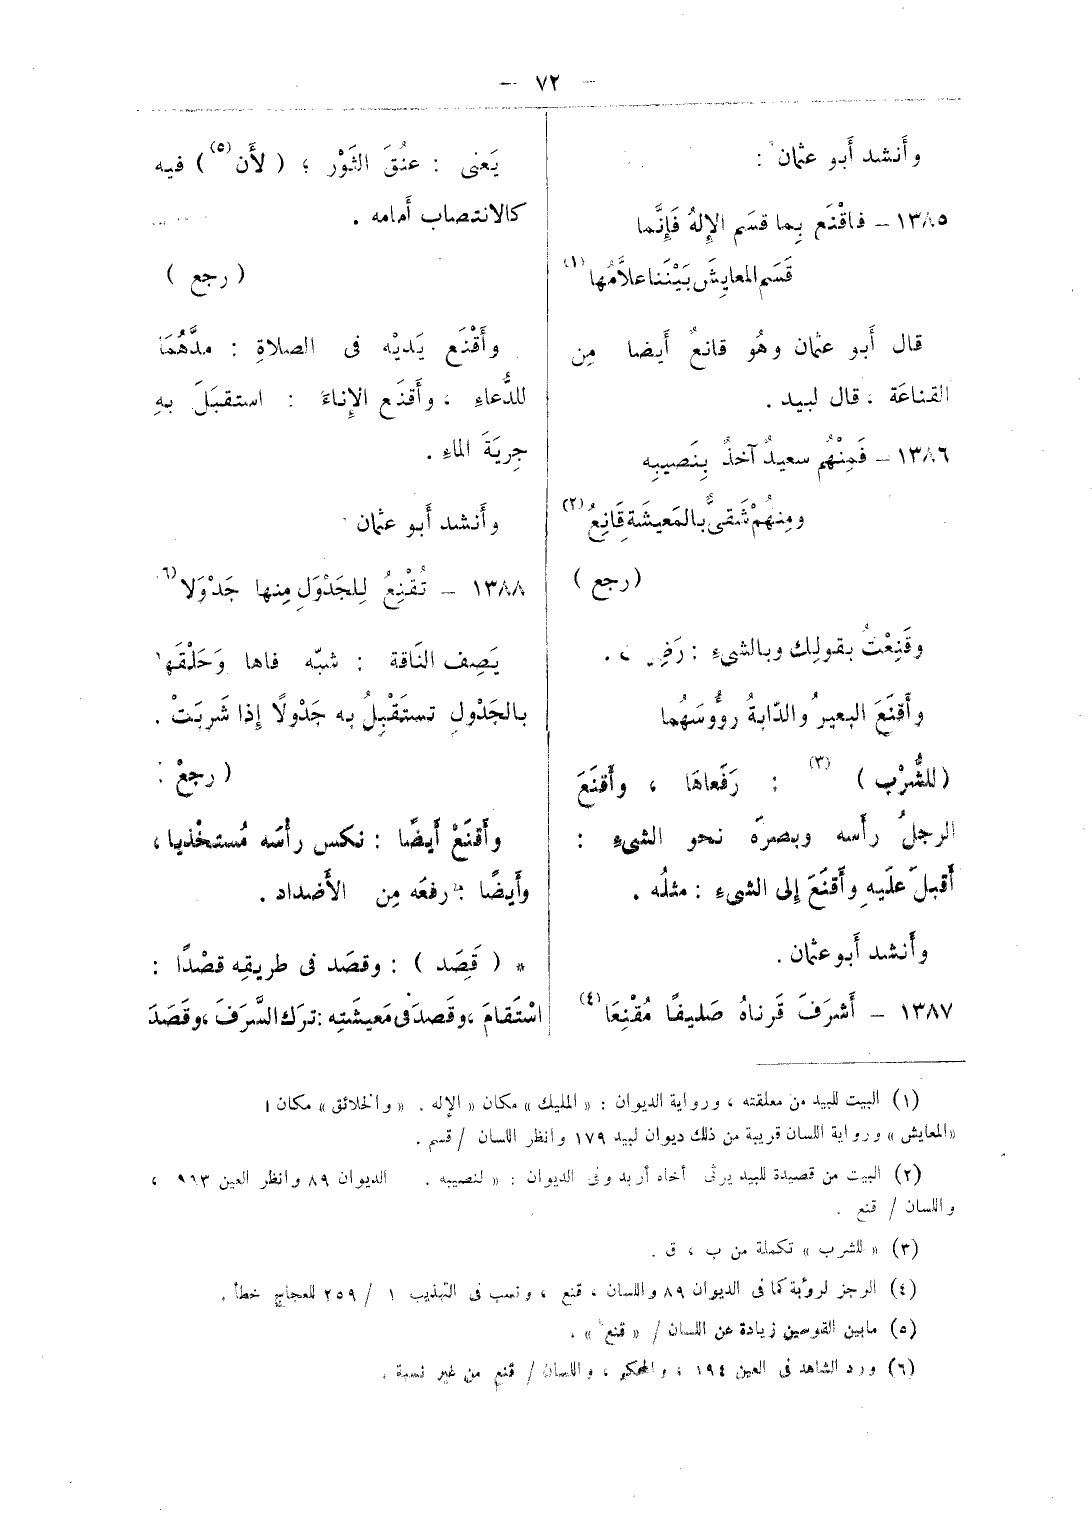 — ٧٢ —
وأَنشد أَبو عثمان :
١٣٨٥ – فاقْنَع بِما قسَم الإِلهُ فَإِنَّما
قَسَم المعايِشَ بَيْنَنا علاَّمُها (١)
قال أَبو عثمان وهُو قانعٌ أَيضا مِن
القناعَة ، قال لبيد .
١٣٨٦ – فَمِنْهُم سعيدٌ آخذٌ بِنَصيبِه
ومِنهُمْ شَقىٌّ بالمَعيشَة قَانِعُ (٢)
(رجع )
وقَنِعْتُ بقولِك وبالشىءِ :
وأَقنَعَ البعيرُ والدّابةُ رؤُوسَهُما
(للشُّرْب ) (٣) : رَفَعاهَا ، وأَقنَعَ
الرجلُ رأسه وبصرَه نحو الشىءِ :
أَقبلَ علَيه وأَقنَعَ إلى الشىءِ : مثلُه .
وأَنشد أَبو عثمان .
١٣٨٧ – أَشرَفَ قَرناهُ صَليفًا مُقْنِعَا (٤)
يَعنى : عنُقَ الثَوْر ؛ ( لأَن (٥) ) فيه
كالانتصاب أَمامه .
( رجع )
وأَقْنَع يَديْه فى الصلاةِ : مدَّهُمَا
للدُّعاءِ ، وأَقنَع الإِناءَ : استقبَلَ بهِ
جِريَةَ الماءِ .
وأَنشد أَبو عثمان
١٣٨٨ – تُقْنِعُ لِلجَدْوَلِ مِنها جَدْوَلا (٦)
يَصِف النَاقة : شبّه فاها وَحَلْقَها
بالجَدْولِ تستَقْبِلُ به جَدْولًا إِذا شَرِبَتْ .
( رجعْ :
وأَقنَعْ أَيضًا : نكس رأسَه مُستخْذيا ،
وأَيضًا : رفعَه مِن الأَضداد .
* ( قَصَد ) : وقصَد فى طريقِه قصْدًا :
اسْتَقامَ ، وقَصدَ فى مَعيشَتِه : ترَك السَّرَفَ ، وقَصَدَ
(١) البيت للبيد من معلقته ، ورواية الديوان : « المليك » مكان « الإله . « والخلائق » مكان ا
«المعايش » ورواية اللسان قريبة من ذلك ديوان لبيد ١٧٩ وانظر اللسان / قسم .
(٢) البيت من قصيدة للبيد يرثى أخاه أربد وفى الديوان : « لنصيبه . الديوان ٨٩ وانظر العين ٩٦٣ ،
واللسان / قنع .
(٣) « للشرب » تكملة من ب ، ق .
(٤) الرجز لرؤبة كما فى الديوان ٨٩ واللسان ، قنع ، ونسب فى التهذيب ١ / ٢٥٩ للعجاج خطأ .
(٥) مابين القوسين زيادة عن اللسان / « قنع » .
(٦) ورد الشاهد فى العين ١٩٤ ، والمحكم ، واللسان / قنع من غير نسبة .